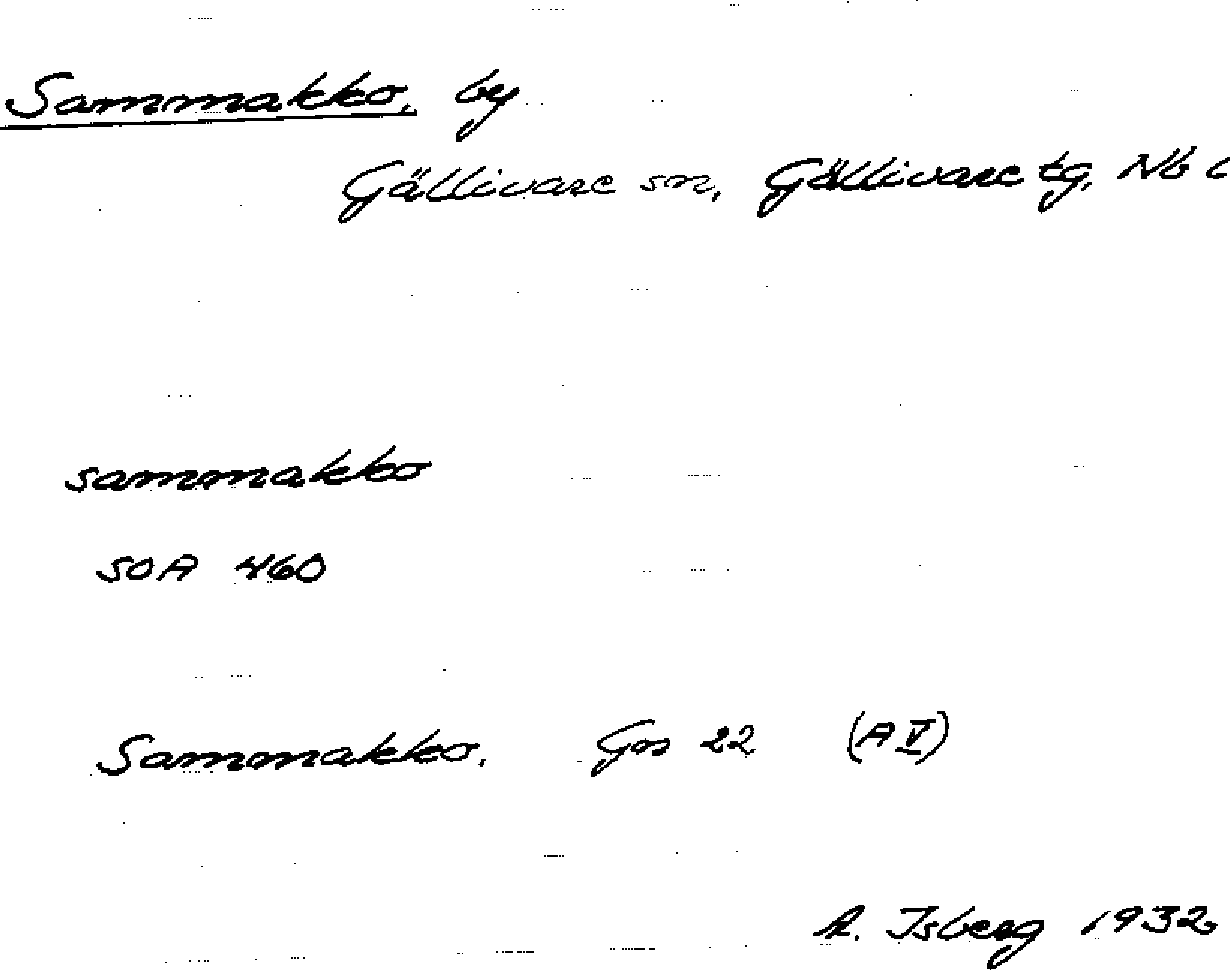 Sammakko, by
Gällivare sn, Gällivare tg, Nb l
sammakko
SOA 460
Sammakko. Gos 22 (A V)
A. Isberg 1932